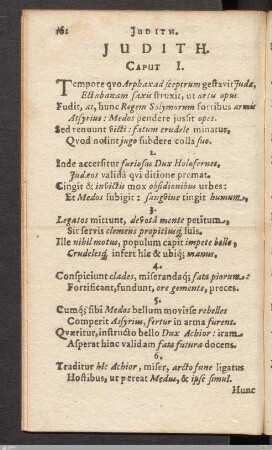 162 JUDITH.
JUDITH.
CAPUT I.
Tempore qvo Arphaxad sceptrum gestavit Judæ,
Ectabanam saxis struxit, ut artu opus
Fudit, at, hunc Regem Solymorum fortibus armis
Assyrius: Medos pendere jussit opes.
Sed renuunt victi: fatum crudele minatur,
Qvod nolint jugo subdere colla suo.
2.
Inde accersitur furiosus Dux Holofernes,
Judæos validâ qvi ditione premat.
Cingit & invictis mox obsidionibus urbes:
Et Medos subigit: sangvine tingit humum.
3.
Legatos mittunt, devotâ mente petitum,
Sit servis clemens propitiusq; suis.
Ille nihil motus, populum capit impete bello,
Crudelesq; infert hîc & ubiq; manus.
4.
Conspiciunt clades, miserandaq; fata piorum:
Fortificant, fundunt, ore gemente, preces.
5.
Cumq; sibi Medos bellum movisse rebelles
Comperit Assyrius, fertur in arma furent.
Qværitur, instructo bello Dux Achior: iram
Asperat hinc validam fata futura docens.
6.
Traditur hîc Achior, miser, arcto fune ligatus
Hostibus, ut pereat Medus, & ipse simul.
Hunc